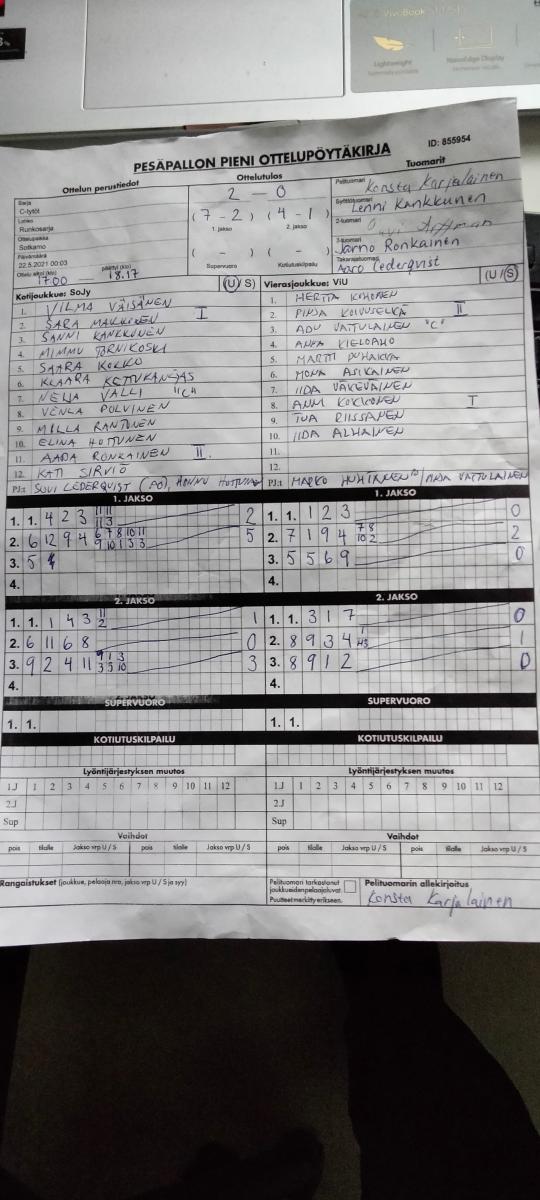 VivoBook
Lightweight
NanoEdge Display
ID: 855954
PESÄPALLON PIENI OTTELUPÖYTÄKIRJA
Ottelun perustiedot
Ottelutulos
Tuomarit
Sarja
C-tytöt
Lohko
Runkosarja
Ottelupaikka
Sotkamo
Päivämäärä
22.5.2021 00:03
Ottelu alkoi (klo) 17.00
päättyi (klo) 18.17
2 - 0
(7 - 2) (4 - 1)
1. jakso 2. jakso
( - ) ( - )
Supervuoro Kotiutuskilpailu
Pelituomari Konsta Karjalainen
Syöttötuomari Lenni Kankkunen
2-tuomari
3-tuomari Jarno Ronkainen
Takarajatuomari Aaro Lederqvist
Kotijoukkue: SoJy (U/ S)
1. VILMA VÄISÄNEN
2. SARA MALKKINEN I
3. SANNI KANKKUNEN
4. MIMMU TORNIKOSKI
5. SAARA KOKKO
6. KLAARA KETTUKANGAS
7. NELJA VALLI "C"
8. VENLA POLVINEN
9. MILLA RANTUNEN
10. ELINA HUTTUNEN
11. AADA RONKAINEN II
12. KATI SIRVIÖ
PJ:t SUVI LEDERQVIST (PO), HANNU HUTTUNEN
Vierasjoukkue: ViU (U /S)
1. HERTTA KIHONEN
2. PINJA KOIVUSELKÄ II
3. ADU VATTULAINEN "C"
4. ANFA KIELOAHO
5. MARTTI PUHAKKA
6. MONA ASIKAINEN
7. IIDA VÄKEVÄINEN
8. ANNI KOKKONEN I
9. TUA RIISSANEN
10. IIDA ALHAINEN
11.
12.
PJ:t MARKO HUHTANEN PO / MAIJA VATTULAINEN
1. JAKSO
1. 1. 4 2 3 11 11 11 3 2
2. 6 12 9 4 6 7 8 10 11 9 10 1 3 3 5
3. 5
4.
1. JAKSO
1. 1. 1 2 3 0
2. 7 1 9 4 7 8 10 2 2
3. 5 5 6 9 0
4.
2. JAKSO
1. 1. 1 4 3 11 2 1
2. 6 11 6 8 0
3. 9 2 4 11 9 1 3 3 5 10 3
4.
2. JAKSO
1. 1. 3 1 7 0
2. 8 9 3 4 1
3. 8 9 1 2 0
4.
SUPERVUORO
1. 1.
SUPERVUORO
1. 1.
KOTIUTUSKILPAILU
KOTIUTUSKILPAILU
Lyöntijärjestyksen muutos
1J 1 2 3 4 5 6 7 8 9 10 11 12
2J
Sup
Lyöntijärjestyksen muutos
1J 1 2 3 4 5 6 7 8 9 10 11 12
2J
Sup
Vaihdot
pois tilalle Jakso vrp U / S pois tilalle Jakso vrp U / S
Vaihdot
pois tilalle Jakso vrp U / S pois tilalle Jakso vrp U / S
Rangaistukset (joukkue, pelaaja nro, jakso vrp U / S ja syy)
Pelituomari tarkastanut
joukkueiden pelaajaluvat.
Puutteet merkitty erikseen.
Pelituomarin allekirjoitus
Konsta Karjalainen